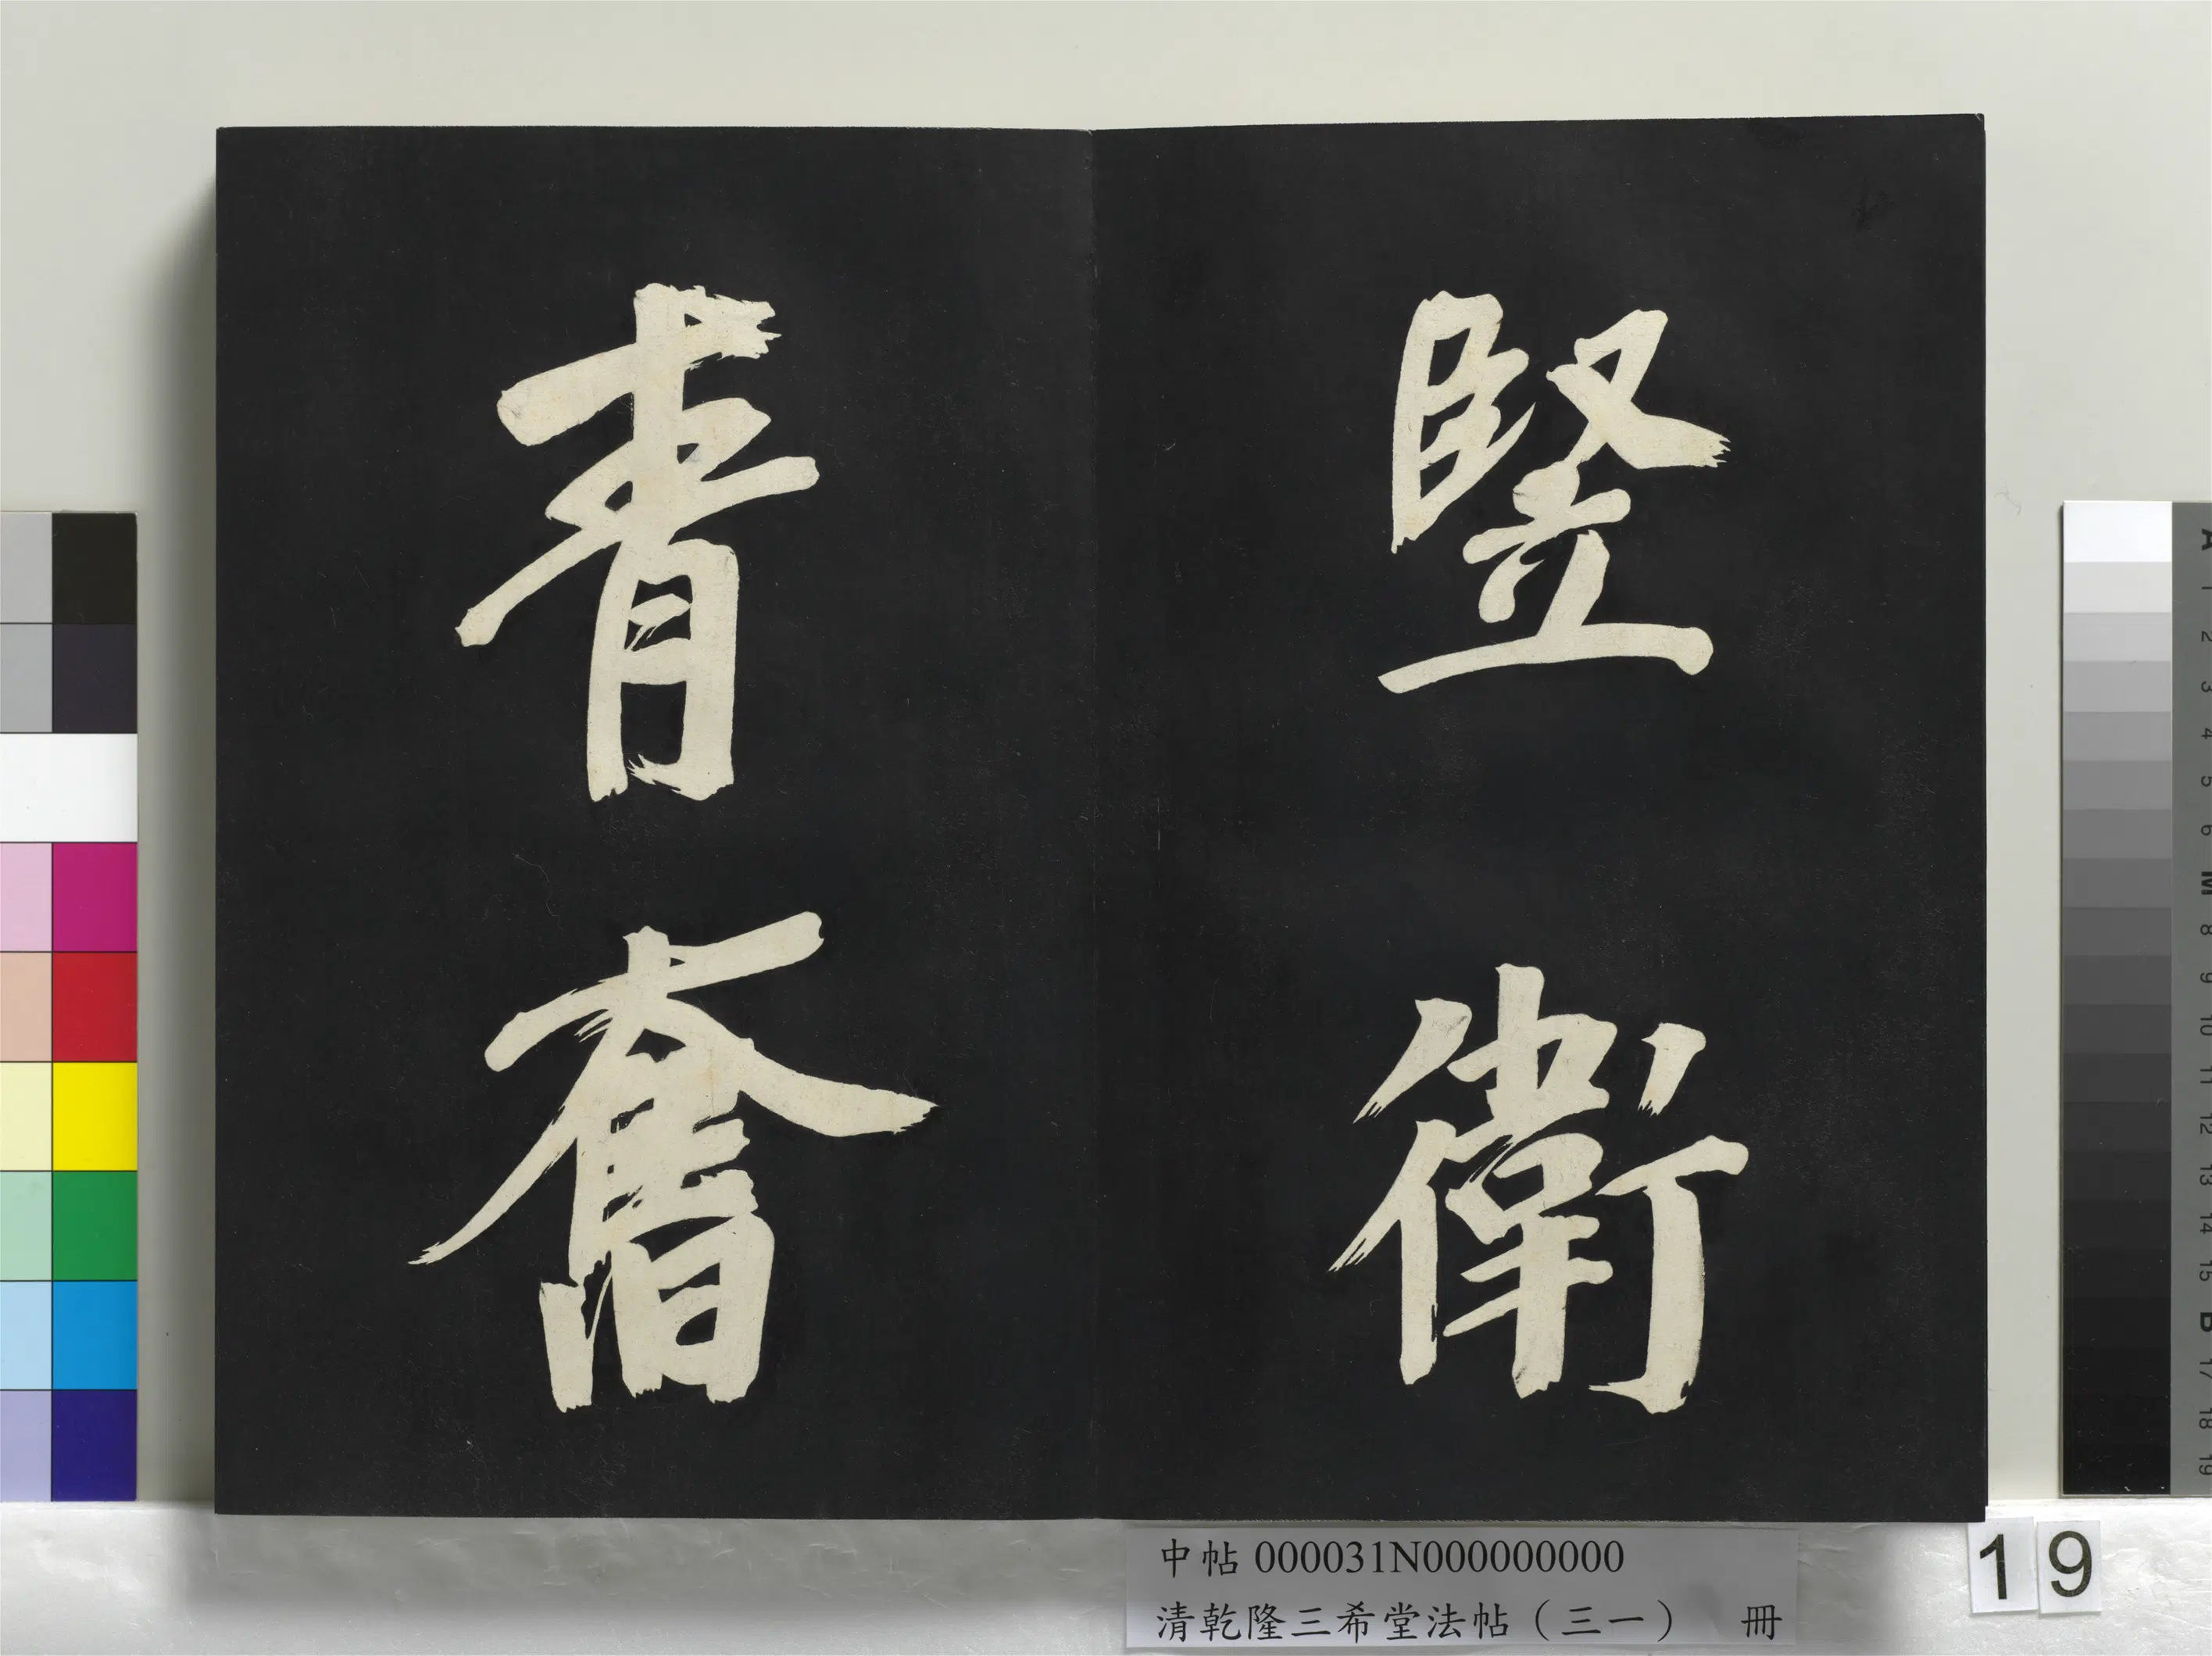 竪衛
青奮
中帖 000031N000000000
清乾隆三希堂法帖（三一） 冊
19
A 1 2 3 4 5 6 M 8 9 10 11 12 13 14 15 B 17 18 19